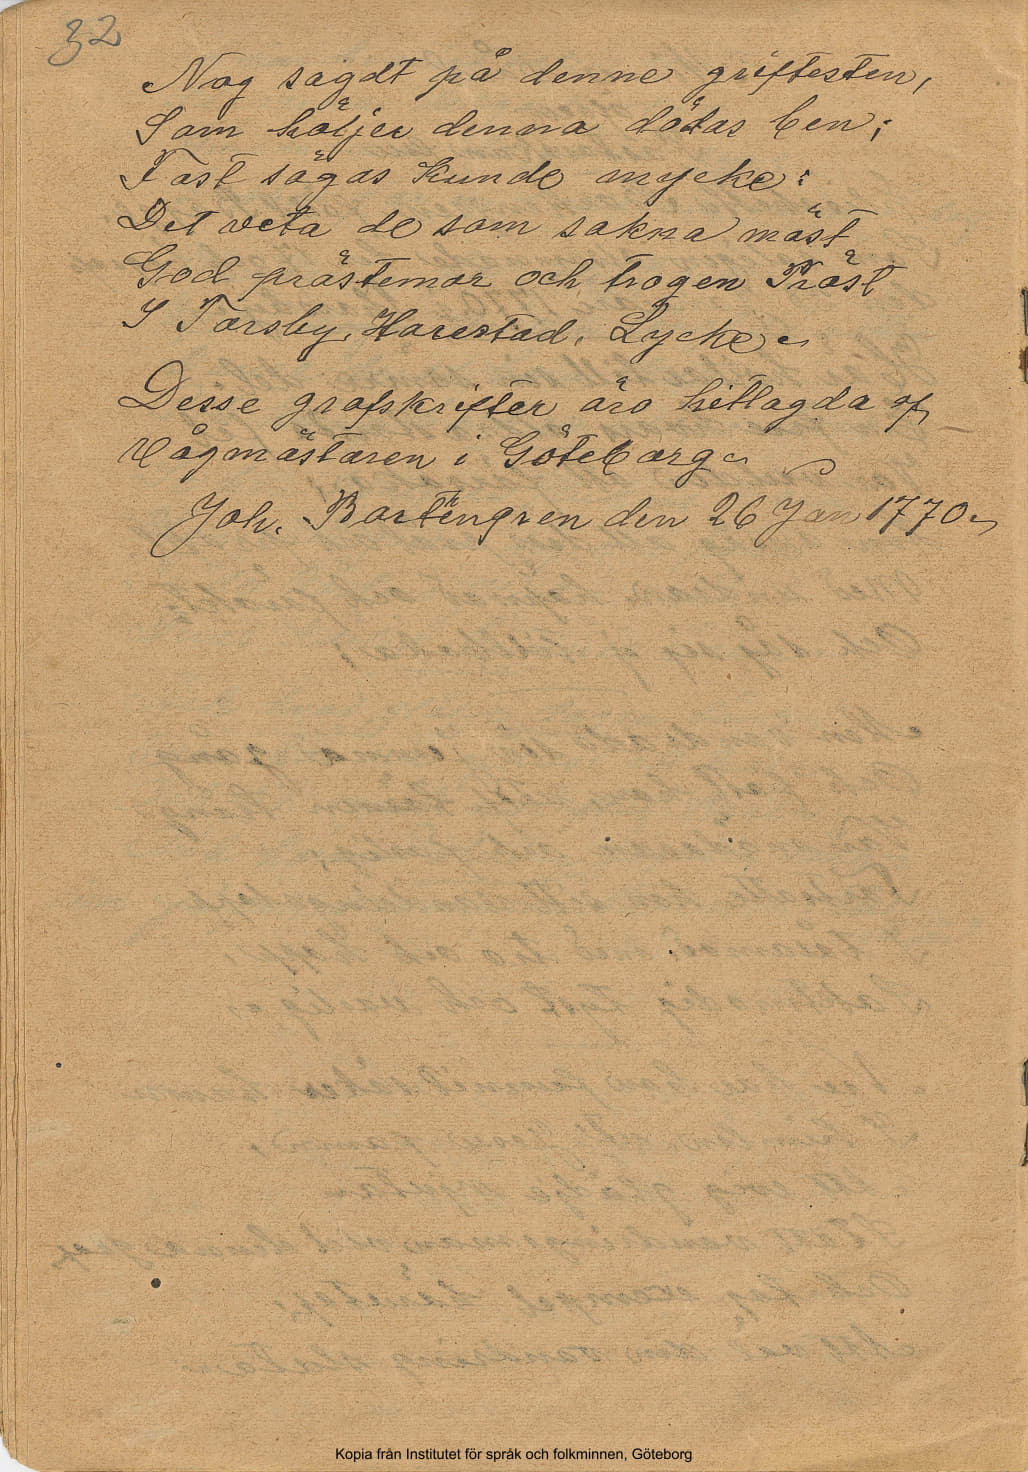 32
Nog sagdt på denne griftesten,
Som höljer denna dödas ben;
Fast sägas kunde mycke:
Det veta de som sakna mäst
God prästemor och trogen Präst
I Torsby, Harestad, Lycke.
Desse grafskrifter äro hitlagda af
Vågmästaren i Göteborg
Joh. den 26 Jan 1770
Kopia från Institutet för språk och folkminnen, Göteborg